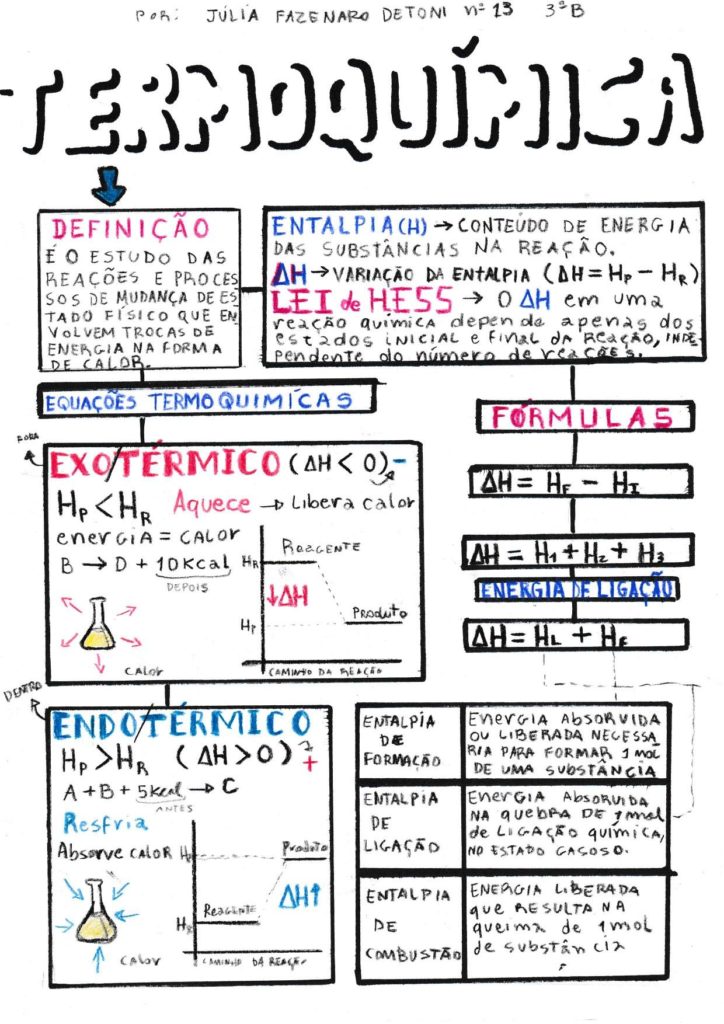 POR: JÚLIA FAZENARO DETONI nº 13 3ºB
TERMOQUÍMICA
DEFINIÇÃO
É O ESTUDO DAS
REAÇÕES E PROCES
SOS DE MUDANÇA DE ES
TADO FÍSICO QUE EN
VOLVEM TROCAS DE
ENERGIA NA FORMA
DE CALOR.
ENTALPIA(H) → CONTEÚDO DE ENERGIA
DAS SUBSTÂNCIAS NA REAÇÃO.
ΔH → VARIAÇÃO DA ENTALPIA (ΔH = Hp - HR)
LEI de HESS → O ΔH em uma
reação química depende apenas dos
estados INICIAL e FINAL DA REAÇÃO, INDE
pendente do número de reações.
EQUAÇÕES TERMOQUIMÍCAS
FÓRMULAS
ΔH = HF - HI
ΔH = H1 + H2 + H3
ENERGIA DE LIGAÇÃO
ΔH = HL + HF
FORA
EXO/TÉRMICO (ΔH < 0) -
Hp < HR Aquece → Libera calor
energia = CALOR
B → D + 10Kcal
DEPOIS
HR
Reagente
↓ΔH
Produto
HP
CALOR
CAMINHO DA REAÇÃO
DENTRO
ENDO/TÉRMICO
Hp > HR (ΔH > 0) +
A + B + 5Kcal → C
ANTES
Resfria
Absorve CALOR
Produto
ΔH↑
Reagente
CALOR
CAMINHO DA REAÇÃO
ENTALPÍA
DE
FORMAÇÃO
ENERGIA ABSORVIDA
OU LIBERADA NECESSÁ
RIA PARA FORMAR 1 mol
DE UMA SUBSTÂNCIA
ENTALPÍA
DE
LIGAÇÃO
ENERGIA ABSORVIDA
NA QUEBRA DE 1 mol
de LIGAÇÃO QUÍMICA,
NO ESTADO GASOSO.
ENTALPIA
DE
COMBUSTÃO
ENERGIA LIBERADA
que RESULTA NA
queima de 1 mol
de substância